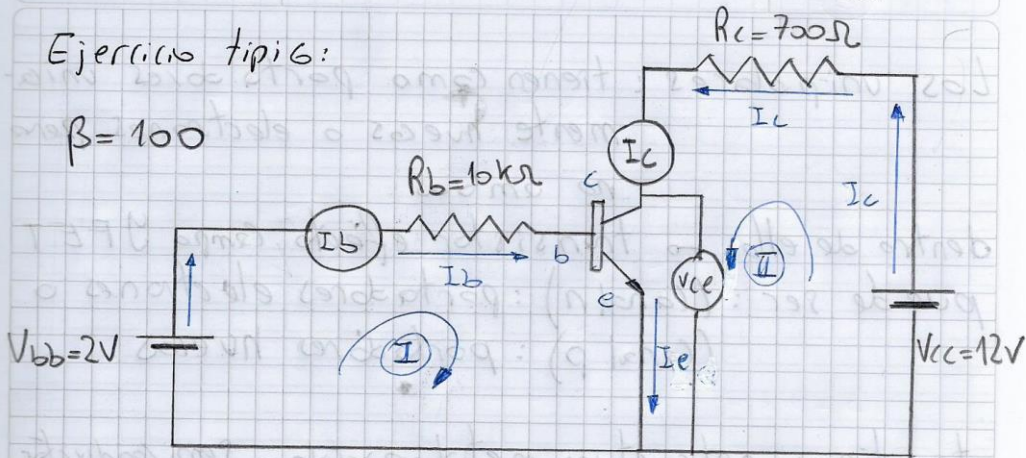 Ejercicio tipico:
β = 100
Rc=700Ω
Ic
Ic
Ic
Rb=10kΩ
c
Ib
Ib
b
e
Vce
II
I
Ie
Vbb=2V
Vcc=12V